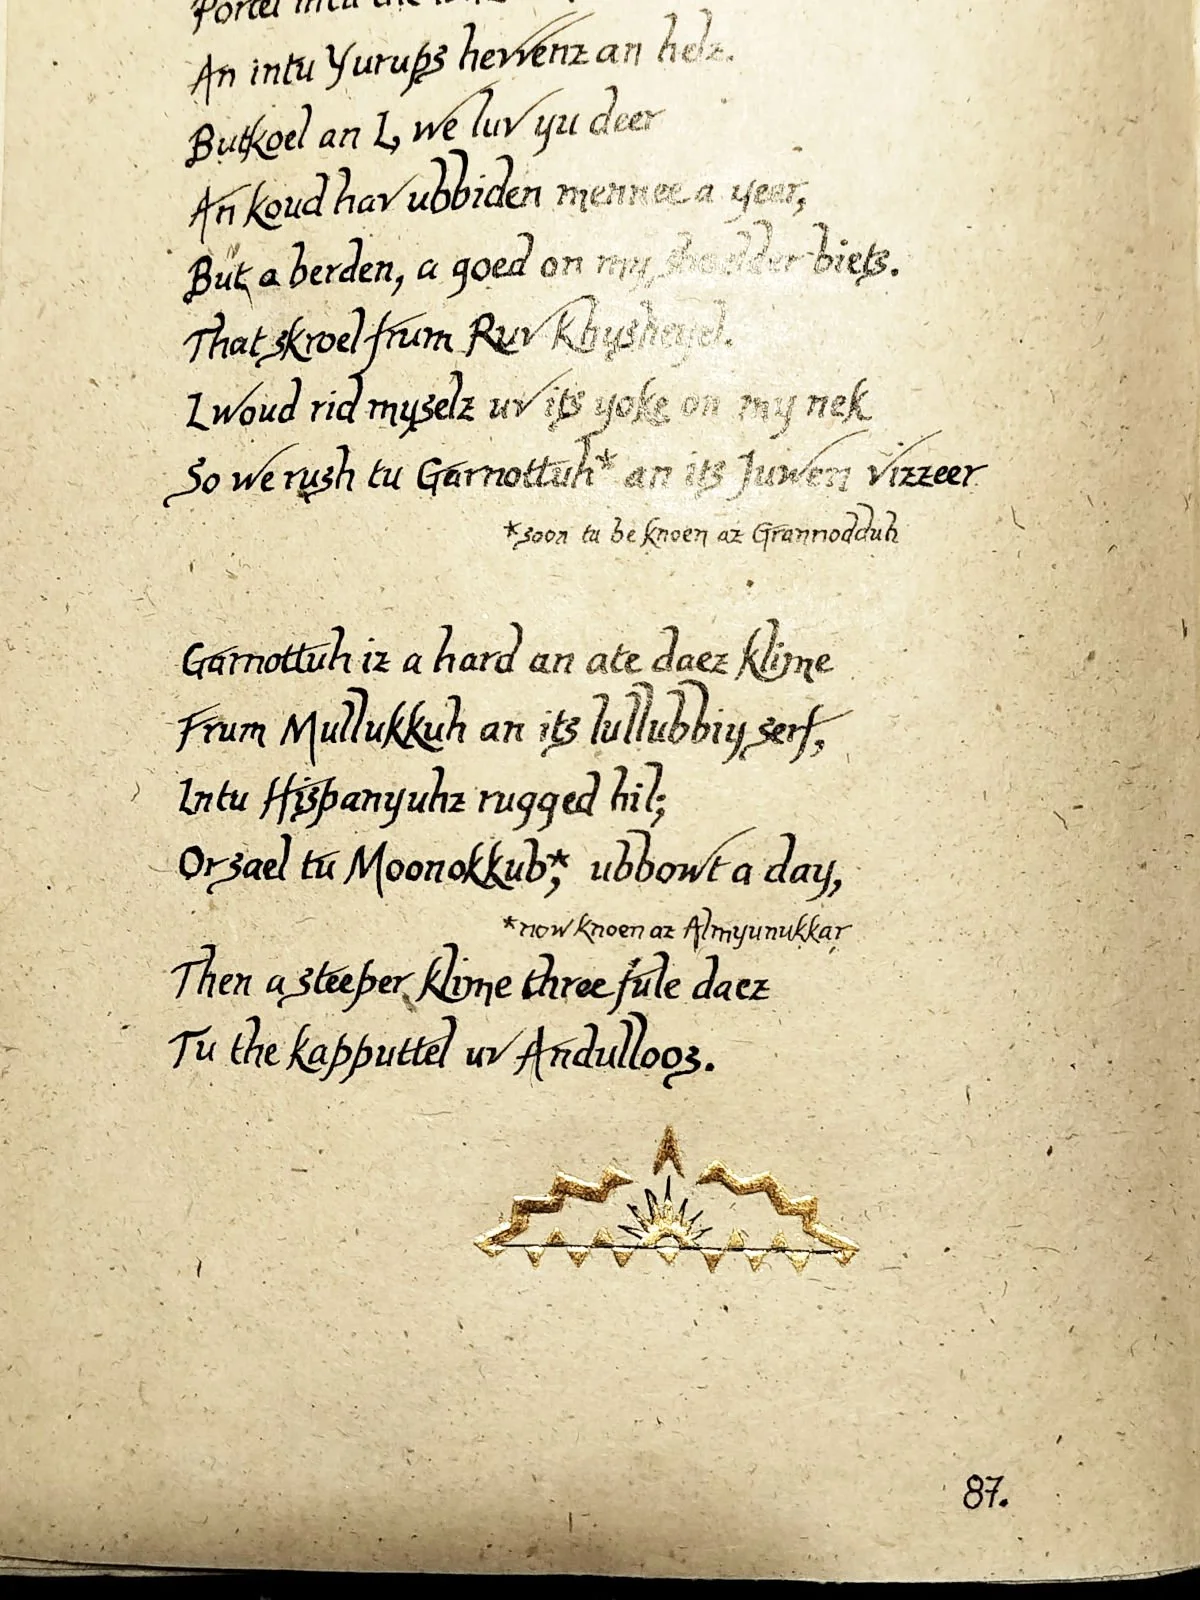 Portel intu the
An intu Yurups hevvenz an helz.
But koel an I, we luv yu deer
An koud hav ubbiden mennee a yeer,
But a berden, a goed on my shoelder biets.
That skroel frum Ruv Khysheyel.
I woud rid myselz uv its yoke on my nek
So we rush tu Garnottuh* an its Juwen vizzeer
*soon tu be knoen az Grannodduh
Garnottuh iz a hard an ate daez klime
Frum Mullukkuh an its lullubbiy serf,
Intu Hispanyuhz rugged hil;
Or sael tu Moonokkub*, ubbowt a day,
*now knoen az Almyunukkar
Then a steeper klime three fule daez
Tu the kapputtel uv Andulloos.
87.